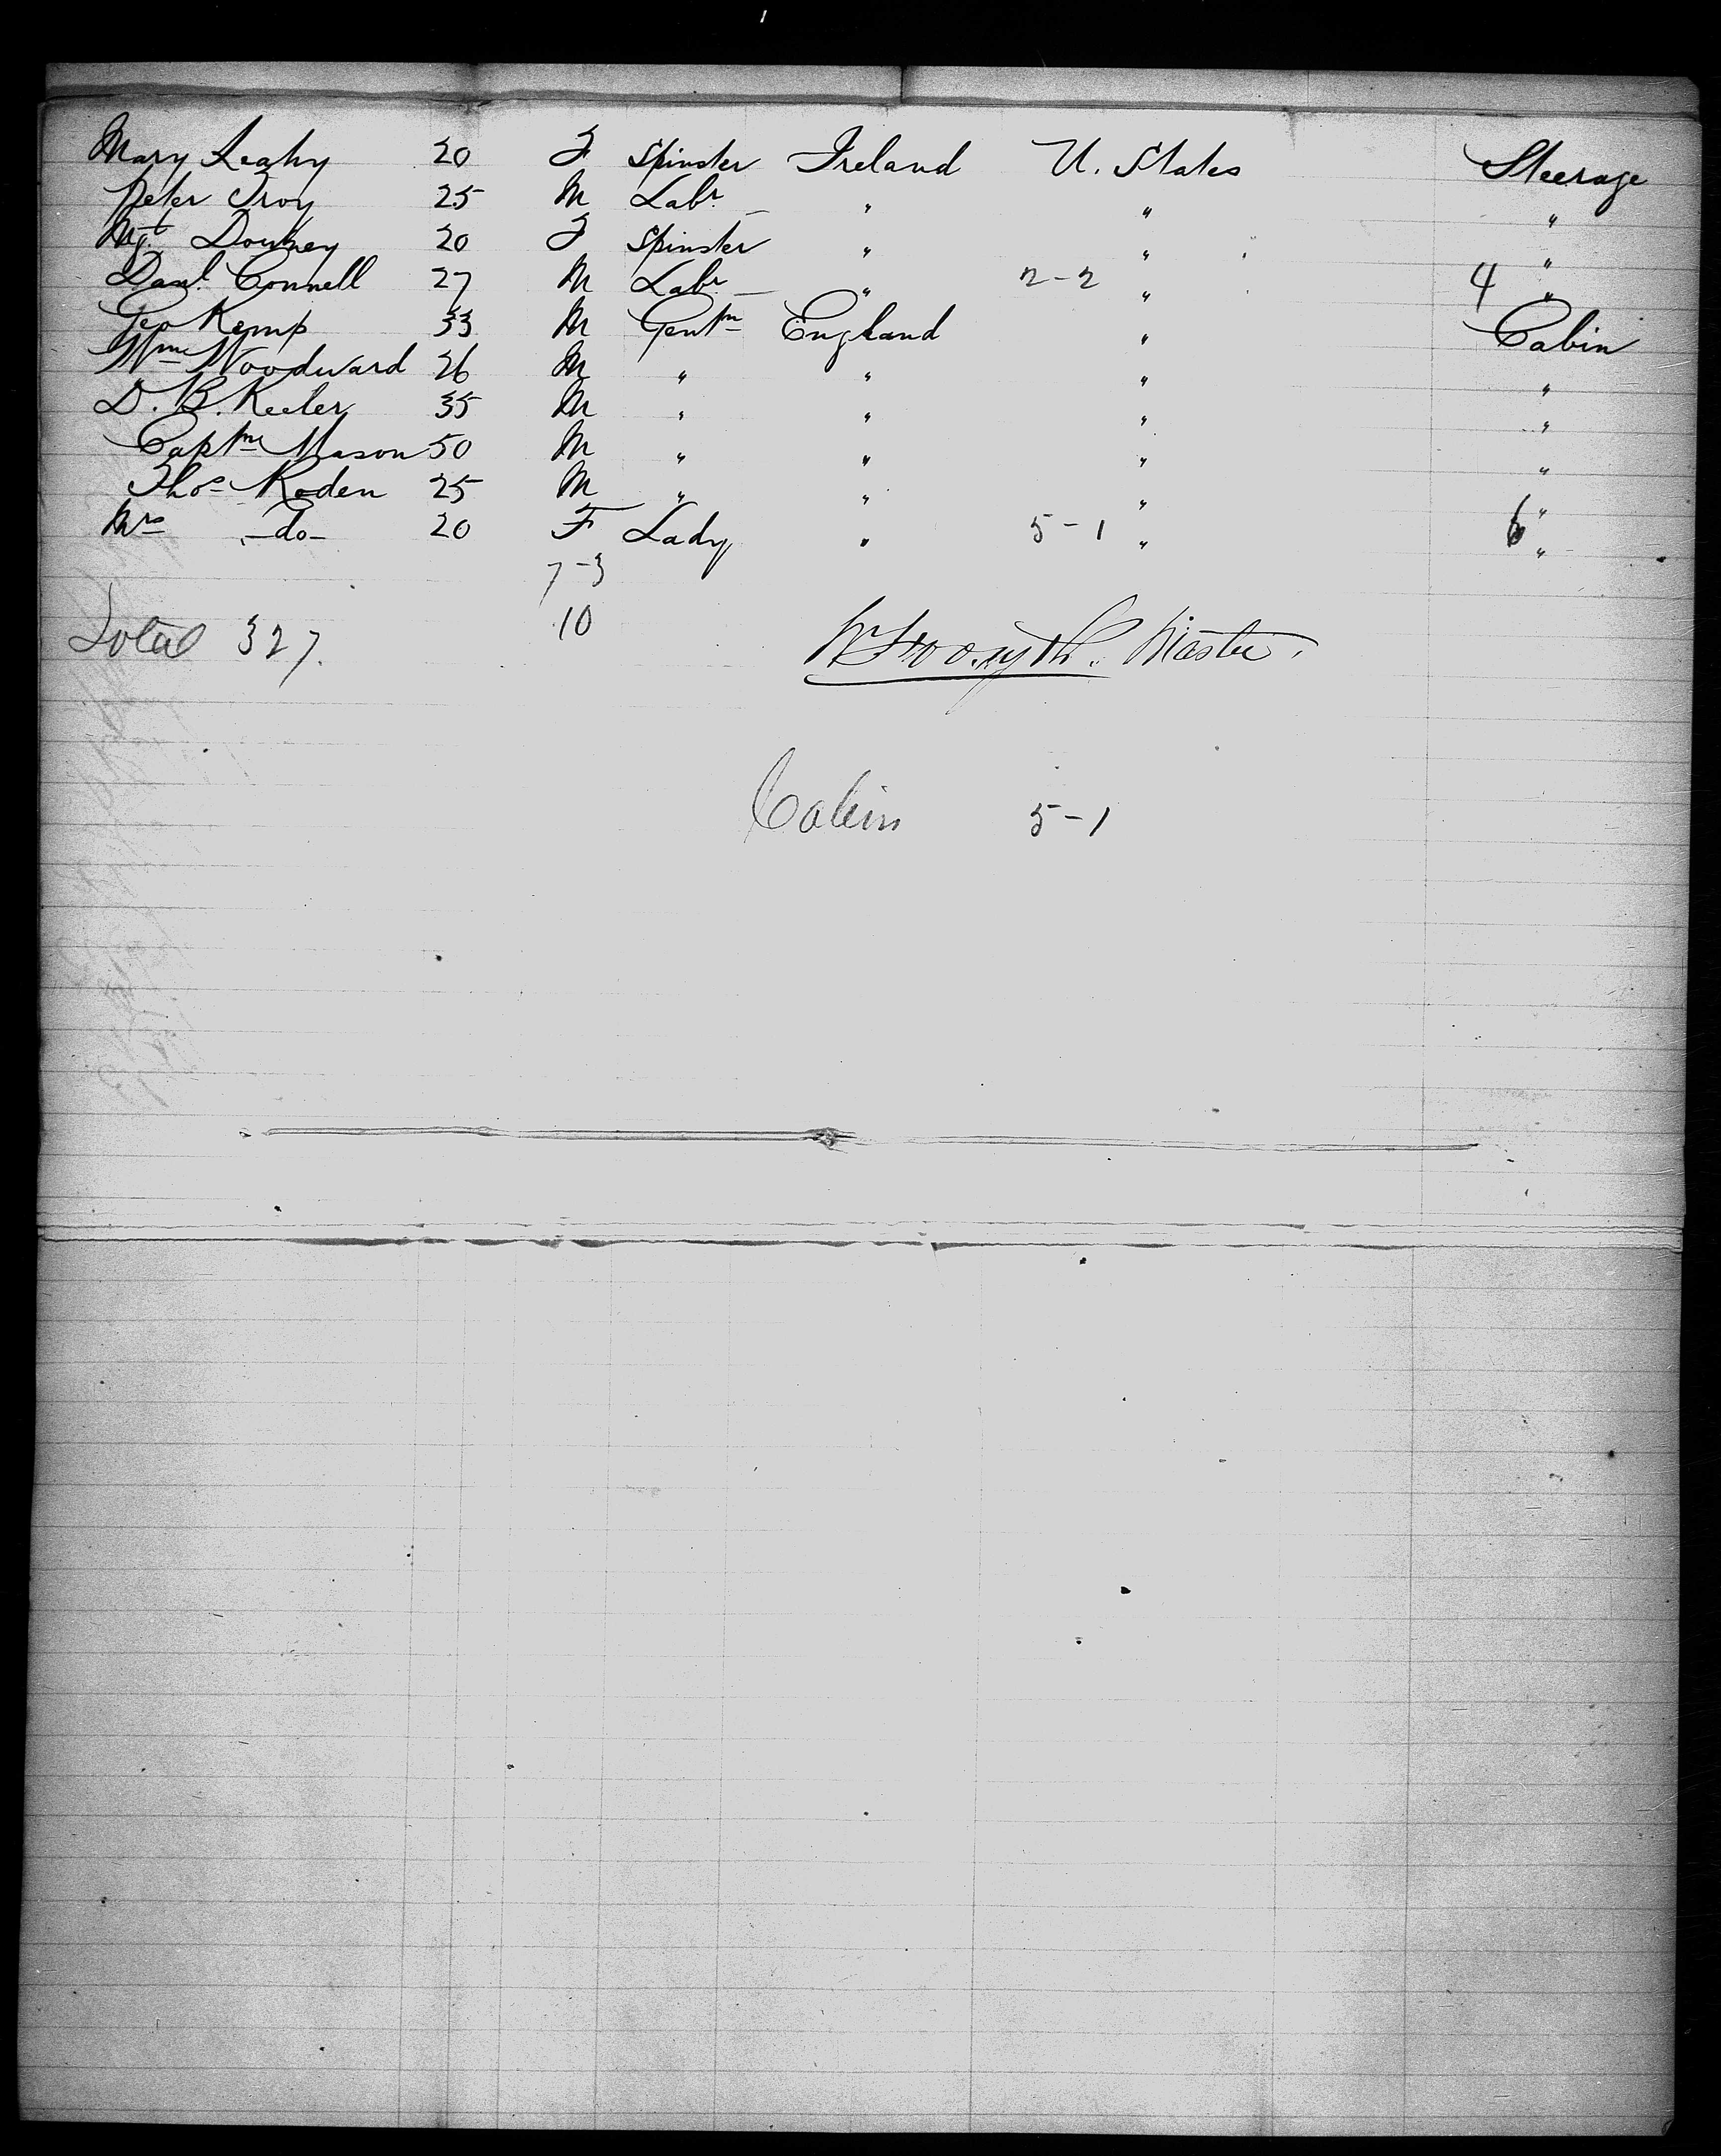 Mary Leahy 20 F Spinster Ireland U. States Steerage
Peter Troy 25 M Labr " " "
Mgt Downey 20 F Spinster " " "
Danl Connell 27 M Labr " 2-2 " 4 "
Geo Kemp 33 M Gentn England " Cabin
Wm Woodward 26 M " " " "
D. B. Keeler 35 M " " " "
Captn Mason 50 M " " " "
Thos Roden 25 M " " " "
Mrs -do- 20 F Lady " 5-1 " 6 "
7-3
10
Total 327. Master.
Cabin 5-1